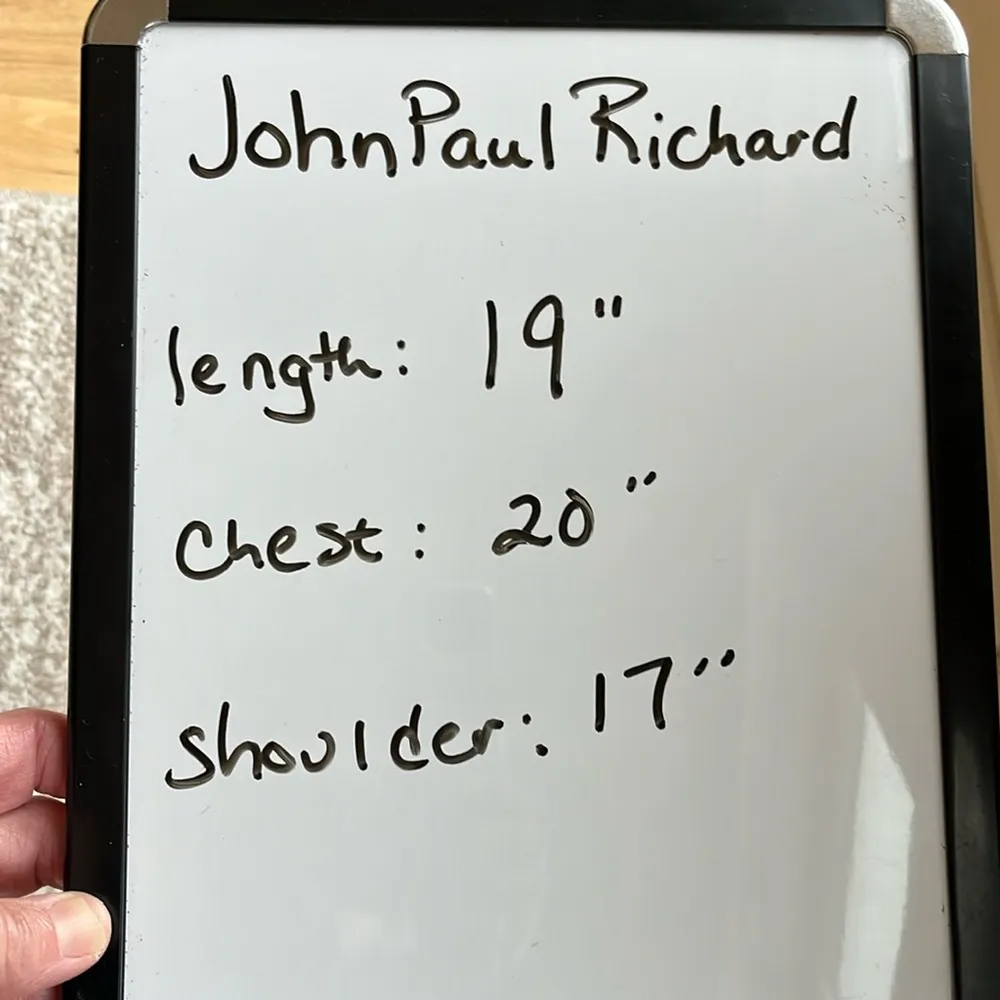 JohnPaul Richard
length: 19"
Chest: 20"
shoulder: 17"